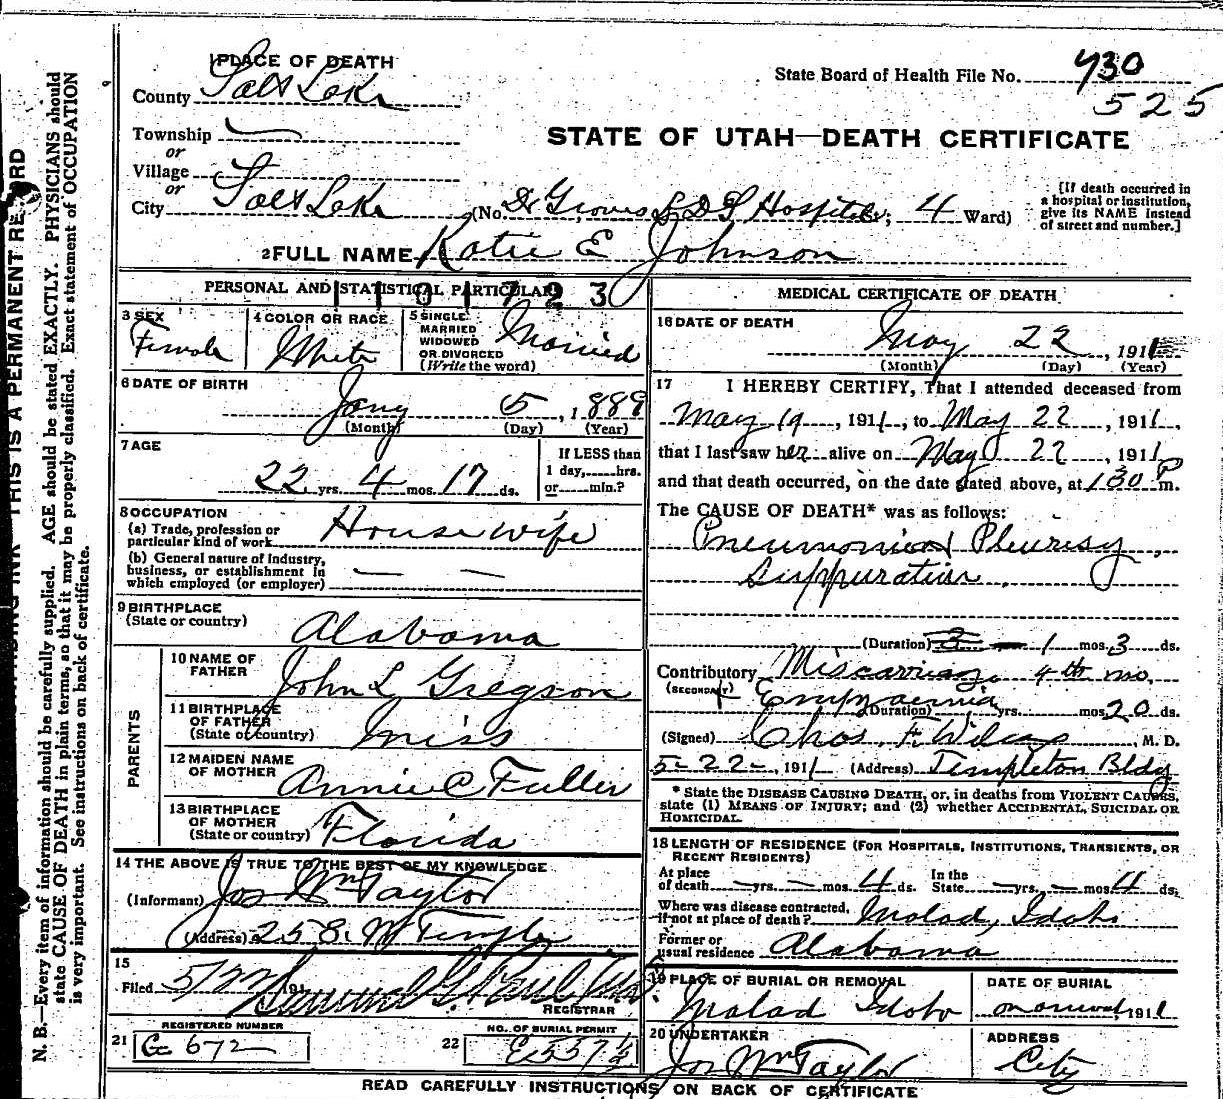 PLACE OF DEATH
County Salt Lake
State Board of Health File No. 430
525
Township
or
Village
or
City Salt Lake
STATE OF UTAH—DEATH CERTIFICATE
(No. Dr Groves L D S Hospital; 4 Ward)
[If death occurred in
a hospital or institution,
give its NAME instead
of street and number.]
2 FULL NAME Katie E Johnson
PERSONAL AND STATISTICAL PARTICULARS
1101723
3 SEX
Female
4 COLOR OR RACE
White
5 SINGLE
MARRIED
WIDOWED
OR DIVORCED
(Write the word)
Married
6 DATE OF BIRTH
Jany 5, 1889
(Month) (Day) (Year)
7 AGE
22 yrs. 4 mos. 17 ds.
If LESS than
1 day, hrs.
or min.?
8 OCCUPATION
(a) Trade, profession or
particular kind of work House wife
(b) General nature of industry,
business, or establishment in
which employed (or employer)
9 BIRTHPLACE
(State or country)
Alabama
PARENTS
10 NAME OF
FATHER
John L Gregson
11 BIRTHPLACE
OF FATHER
(State or country)
Miss
12 MAIDEN NAME
OF MOTHER
Annie C Fuller
13 BIRTHPLACE
OF MOTHER
(State or country)
Florida
14 THE ABOVE IS TRUE TO THE BEST OF MY KNOWLEDGE
(Informant) Jos Wm Taylor
(Address) 258 Temple
15
Filed 5/22 191
REGISTRAR
REGISTERED NUMBER
21 672
NO. OF BURIAL PERMIT
22 E557½
MEDICAL CERTIFICATE OF DEATH
16 DATE OF DEATH
May 22, 1911
(Month) (Day) (Year)
17 I HEREBY CERTIFY, That I attended deceased from
May 19, 1911, to May 22, 1911,
that I last saw her alive on May 22, 1911
and that death occurred, on the date stated above, at 130 P m.
The CAUSE OF DEATH* was as follows:
Pneumonia Pleurisy,
Suppuration.
(Duration) 1 mos. 3 ds.
Contributory Miscarriage 4th mo.
(SECONDARY) Empyaemia
(Duration) yrs. mos. 20 ds.
(Signed) Chas. F. Wilcox, M. D.
5-22-, 1911 (Address) Templeton Bldg
* State the DISEASE CAUSING DEATH, or, in deaths from VIOLENT CAUSES,
state (1) MEANS OF INJURY; and (2) whether ACCIDENTAL, SUICIDAL OR
HOMICIDAL.
18 LENGTH OF RESIDENCE (FOR HOSPITALS, INSTITUTIONS, TRANSIENTS, OR
RECENT RESIDENTS)
At place
of death — yrs. — mos. 4 ds.
In the
State — yrs. — mos. 4 ds.
Where was disease contracted,
if not at place of death? Malad, Idaho
Former or
usual residence Alabama
19 PLACE OF BURIAL OR REMOVAL
Malad Idaho
DATE OF BURIAL
1911
20 UNDERTAKER
Jos Wm Taylor
ADDRESS
City
READ CAREFULLY INSTRUCTIONS ON BACK OF CERTIFICATE
THIS IS A PERMANENT RECORD
N. B.—Every item of information should be carefully supplied. AGE should be stated EXACTLY. PHYSICIANS should
state CAUSE OF DEATH in plain terms, so that it may be properly classified. Exact statement of OCCUPATION
is very important. See instructions on back of certificate.